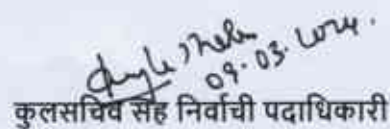 09.03.2024.
कुलसचिव सह निर्वाची पदाधिकारी